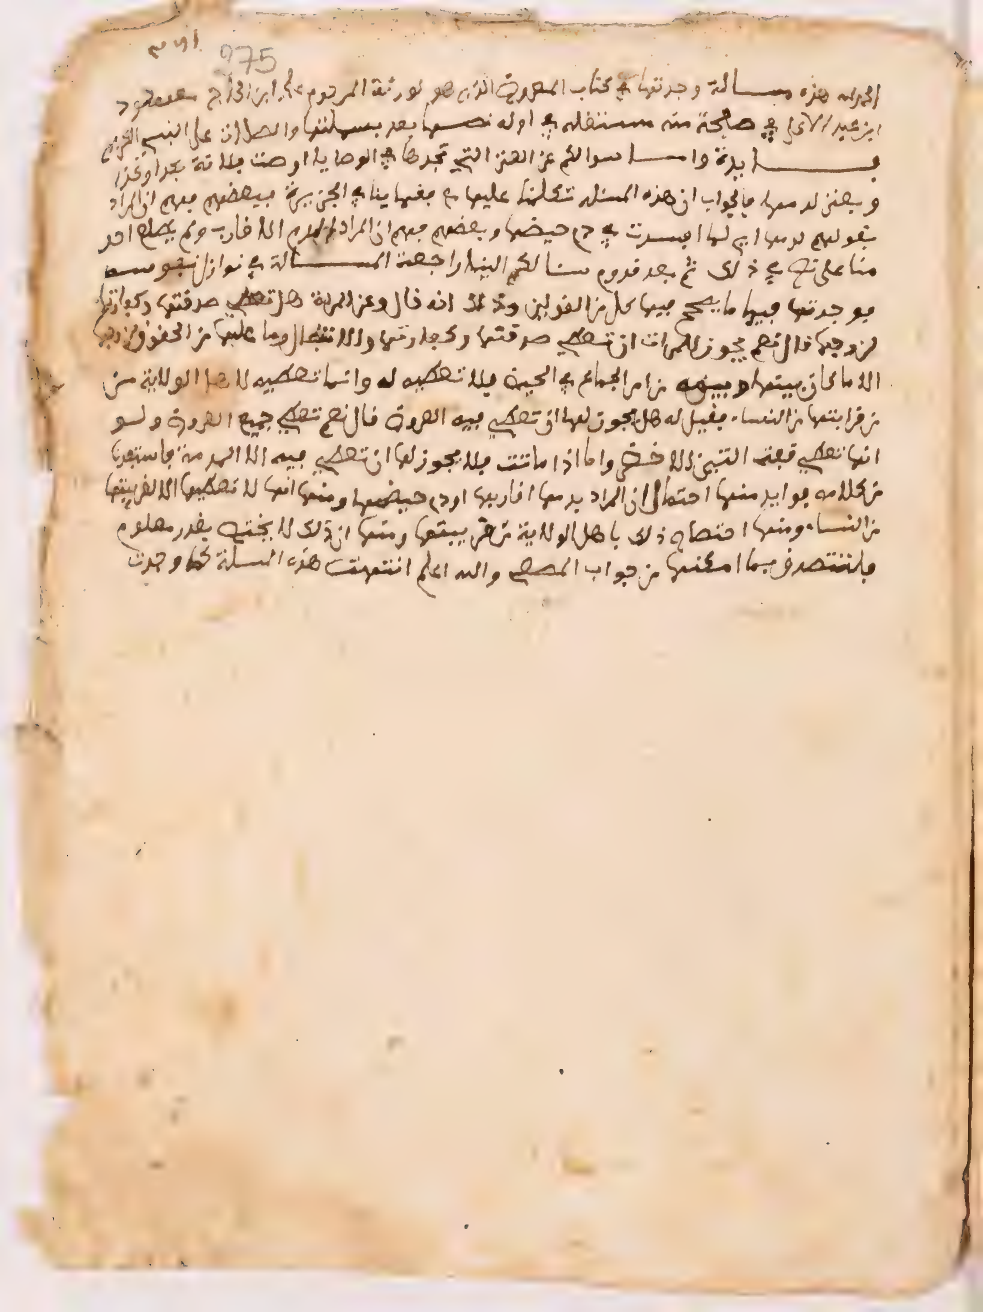 975
الحمد لله هذه مسالة وجدتها في كتاب المعروف الذي هو لورثة المرحوم علي ابن الحاج مسعود
ابن عبد الاعلى في صفحة منه مستقلة في اوله نصها بعد بسملتها والصلاة على النبي الكريم
فايدة واما سوالكم عن العنز التي تجدها في الوصايا اوصت فلانة بعد او كذا
وبعنز لدمها فالجواب ان هذه المسئلة تكلمنا عليها مع فقهاينا في الجزيرة فبعضهم فهم ان المراد
بقولهم لدمها اي لما افسدت في دم حيضها وبعضهم فهم ان المراد لدم الاقارب ولم يطلع احد
منا على نص في ذلك ثم بعد قدوم سوالكم الينا راجعت المسالة في نوازل نفوسة
فوجدتها فيها ما يصحح فيها كل من القولين وذلك انه قال وعن المرية هل تعطي صدقتها وكفارتها
لزوجها قال نعم يجوز للمراة ان تعطي صدقتها وكفارتها والانتصال وما عليها من الحقوق لزوجها
الا ما كان بينها وبينه من امر الجماع في الحيض فلا تعطيه له وانما تعطيه لاهل الولاية من
من قرابتها من النساء فقيل له هل يجوز لها ان تعطي فيه العروض قال نعم تعطي جميع العروض ولو
انها تعطي قبضة التبن الاخضر واما اذا ماتت فلا يجوز لها ان تعطي فيه الا الدمنة فاستفدنا
من كلامه فوايد منها احتمال ان المراد بدمها اقاربها او دم حيضها ومنها انها لا تعطيها الا لقريبتها
من النساء ومنها اختصاص ذلك باهل الولاية من قريبتها ومنها ان ذلك لا يختص بقدر معلوم
فلتتصدق بما امكنها من جواب المصعبي والله اعلم انتهت هذه المسلة كما وجدت